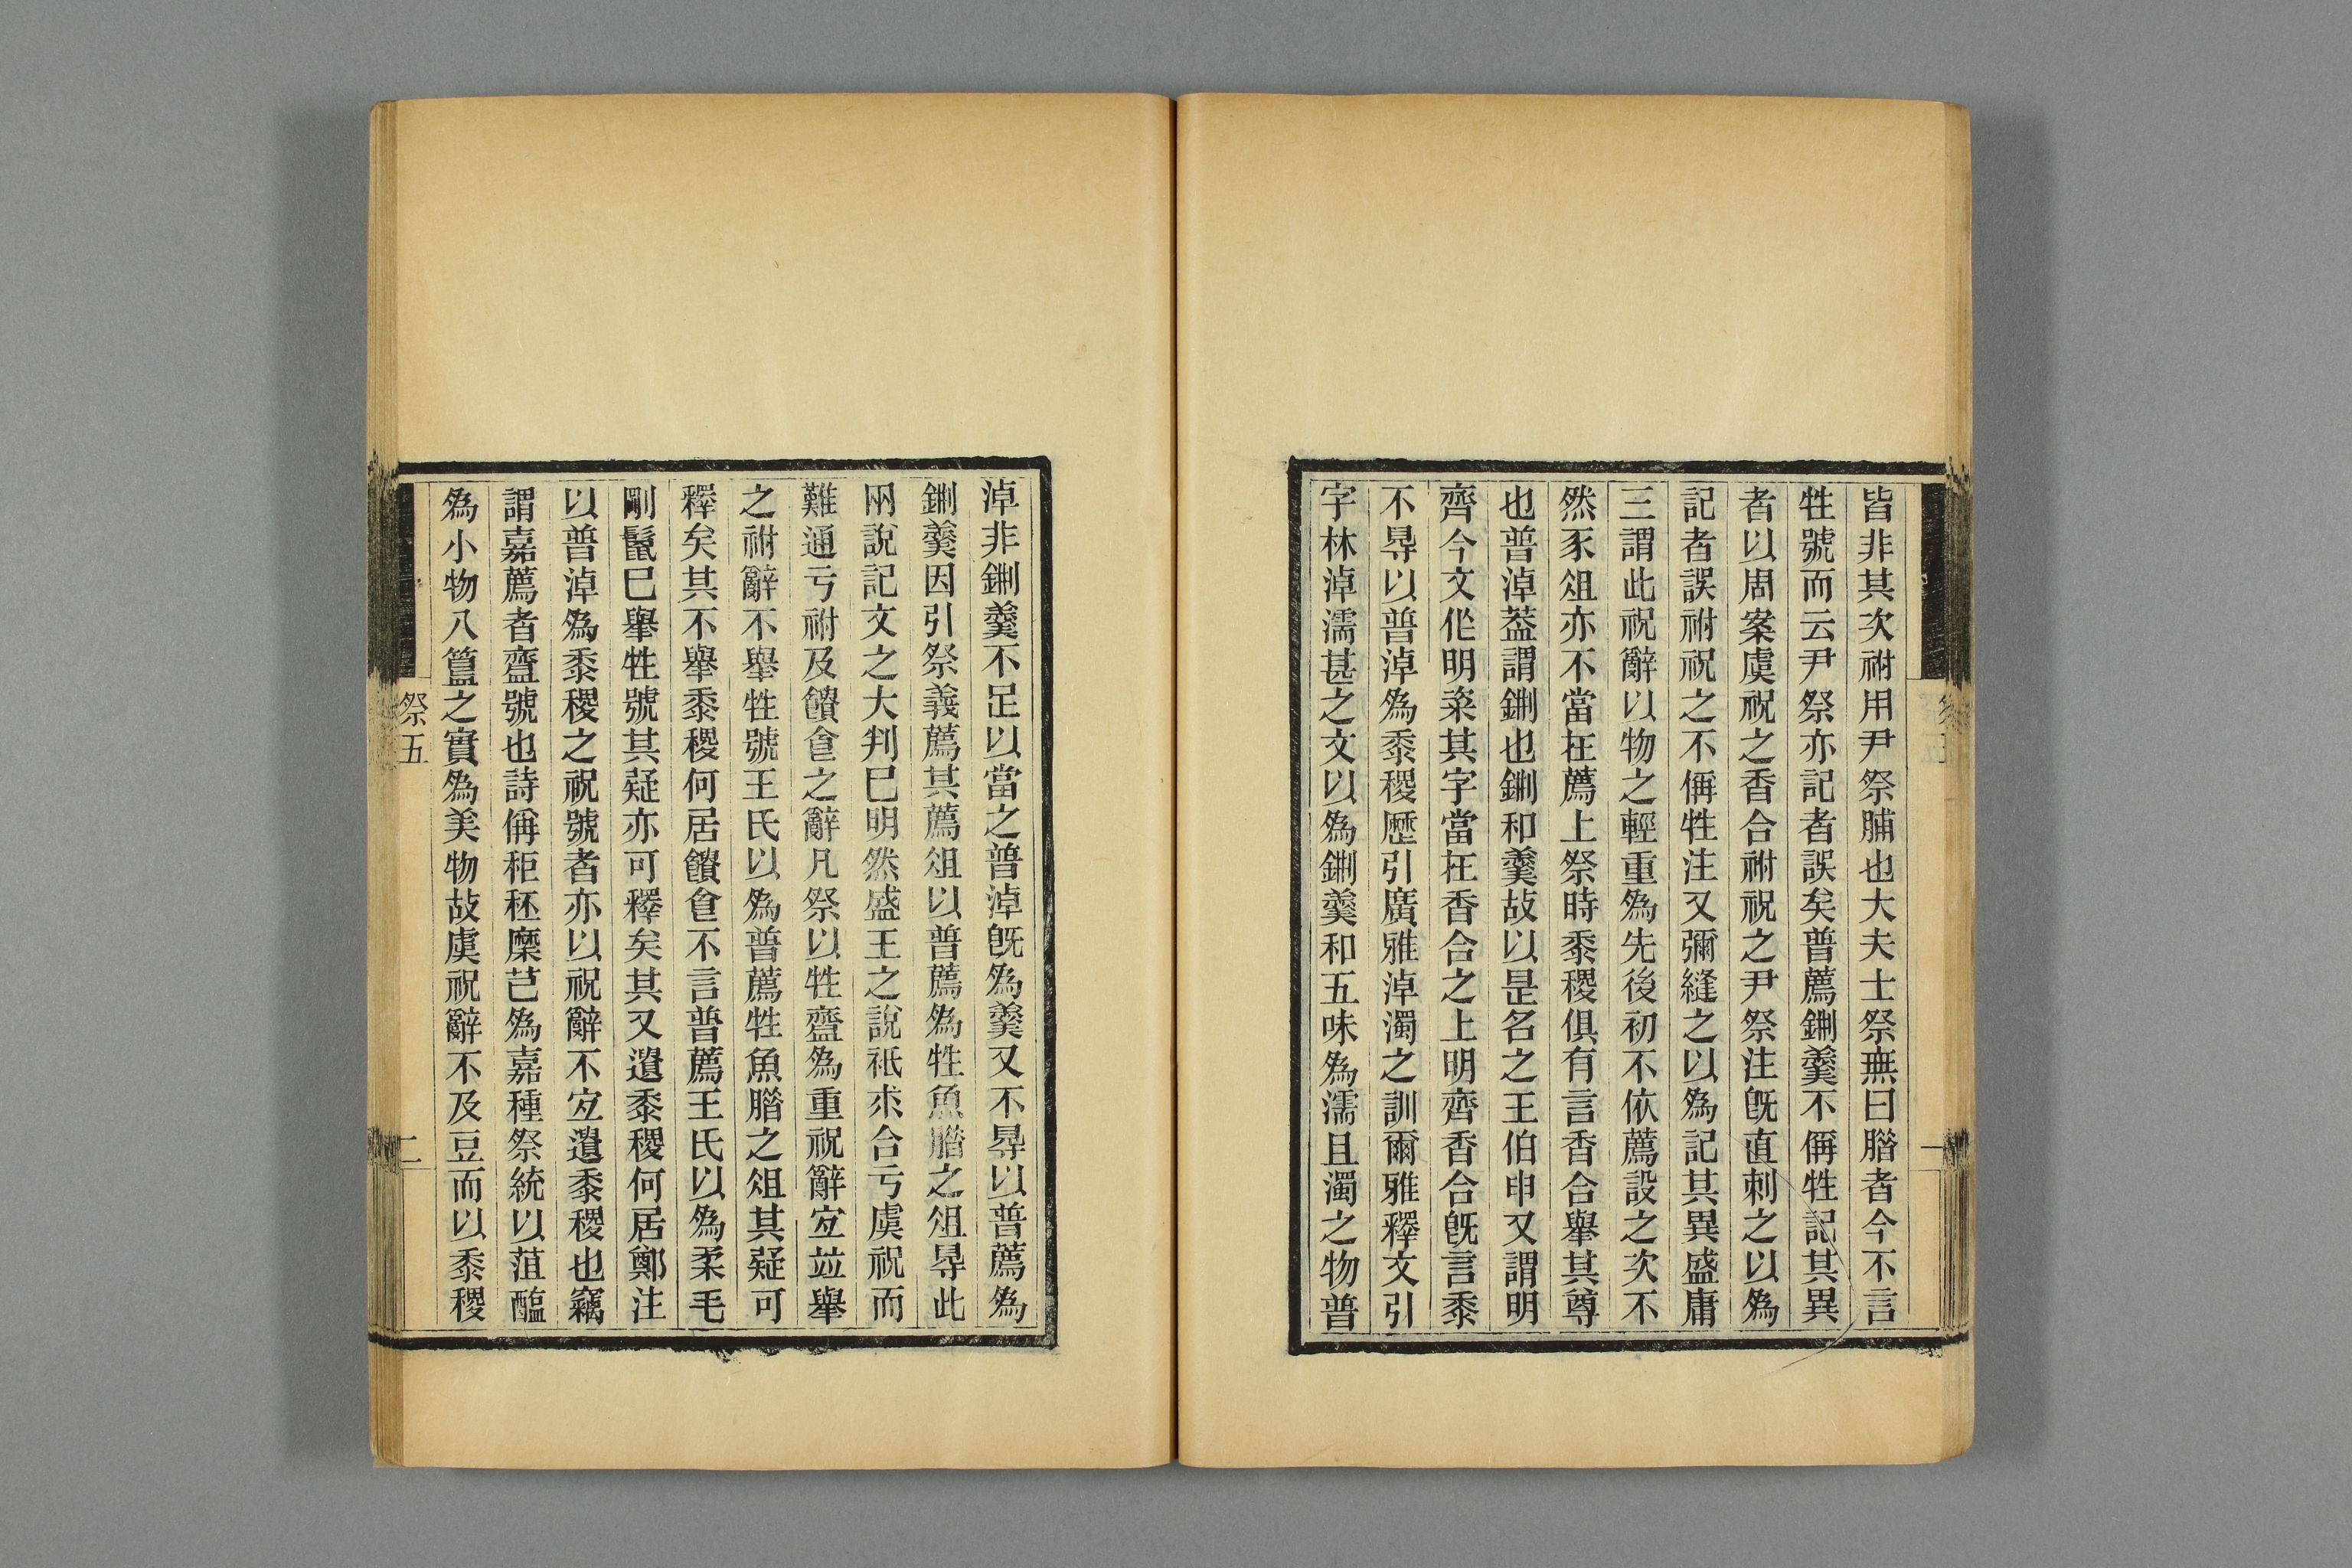 皆非其次祔用尹祭脯也大夫士祭無曰腊者今不言
牲號而云尹祭亦記者誤矣普薦鉶羹不偁牲記其異
者以周案虞祝之香合祔祝之尹祭注旣直刺之以爲
記者誤祔祝之不偁牲注又彌縫之以爲記其異盛庸
三謂此祝辭以物之輕重爲先後初不依薦設之次不
然豕俎亦不當在薦上祭時黍稷俱有言香合舉其尊
也普淖葢謂鉶也鉶和羹故以是名之王伯申又謂明
齊今文作明粢其字當在香合之上明齊香合旣言黍
不㝵以普淖爲黍稷歷引廣雅淖濁之訓爾雅釋文引
字林淖濡甚之文以爲鉶羹和五味爲濡且濁之物普
祭五
一
淖非鉶羹不足以當之普淖旣爲羹又不㝵以普薦爲
鉶羹因引祭義薦其薦俎以普薦爲牲魚腊之俎㝵此
兩說記文之大判已明然盛王之說祇求合亏虞祝而
難通亏祔及饋食之辭凡祭以牲齍爲重祝辭宐竝舉
之祔辭不舉牲號王氏以爲普薦牲魚腊之俎其疑可
釋矣其不舉黍稷何居饋食不言普薦王氏以爲柔毛
剛鬣已舉牲號其疑亦可釋矣其又遺黍稷何居鄭注
以普淖爲黍稷之祝號者亦以祝辭不宐遺黍稷也竊
謂嘉薦者齍號也詩偁秬秠穈芑爲嘉種祭統以菹醢
爲小物八簋之實爲美物故虞祝辭不及豆而以黍稷
祭五
二